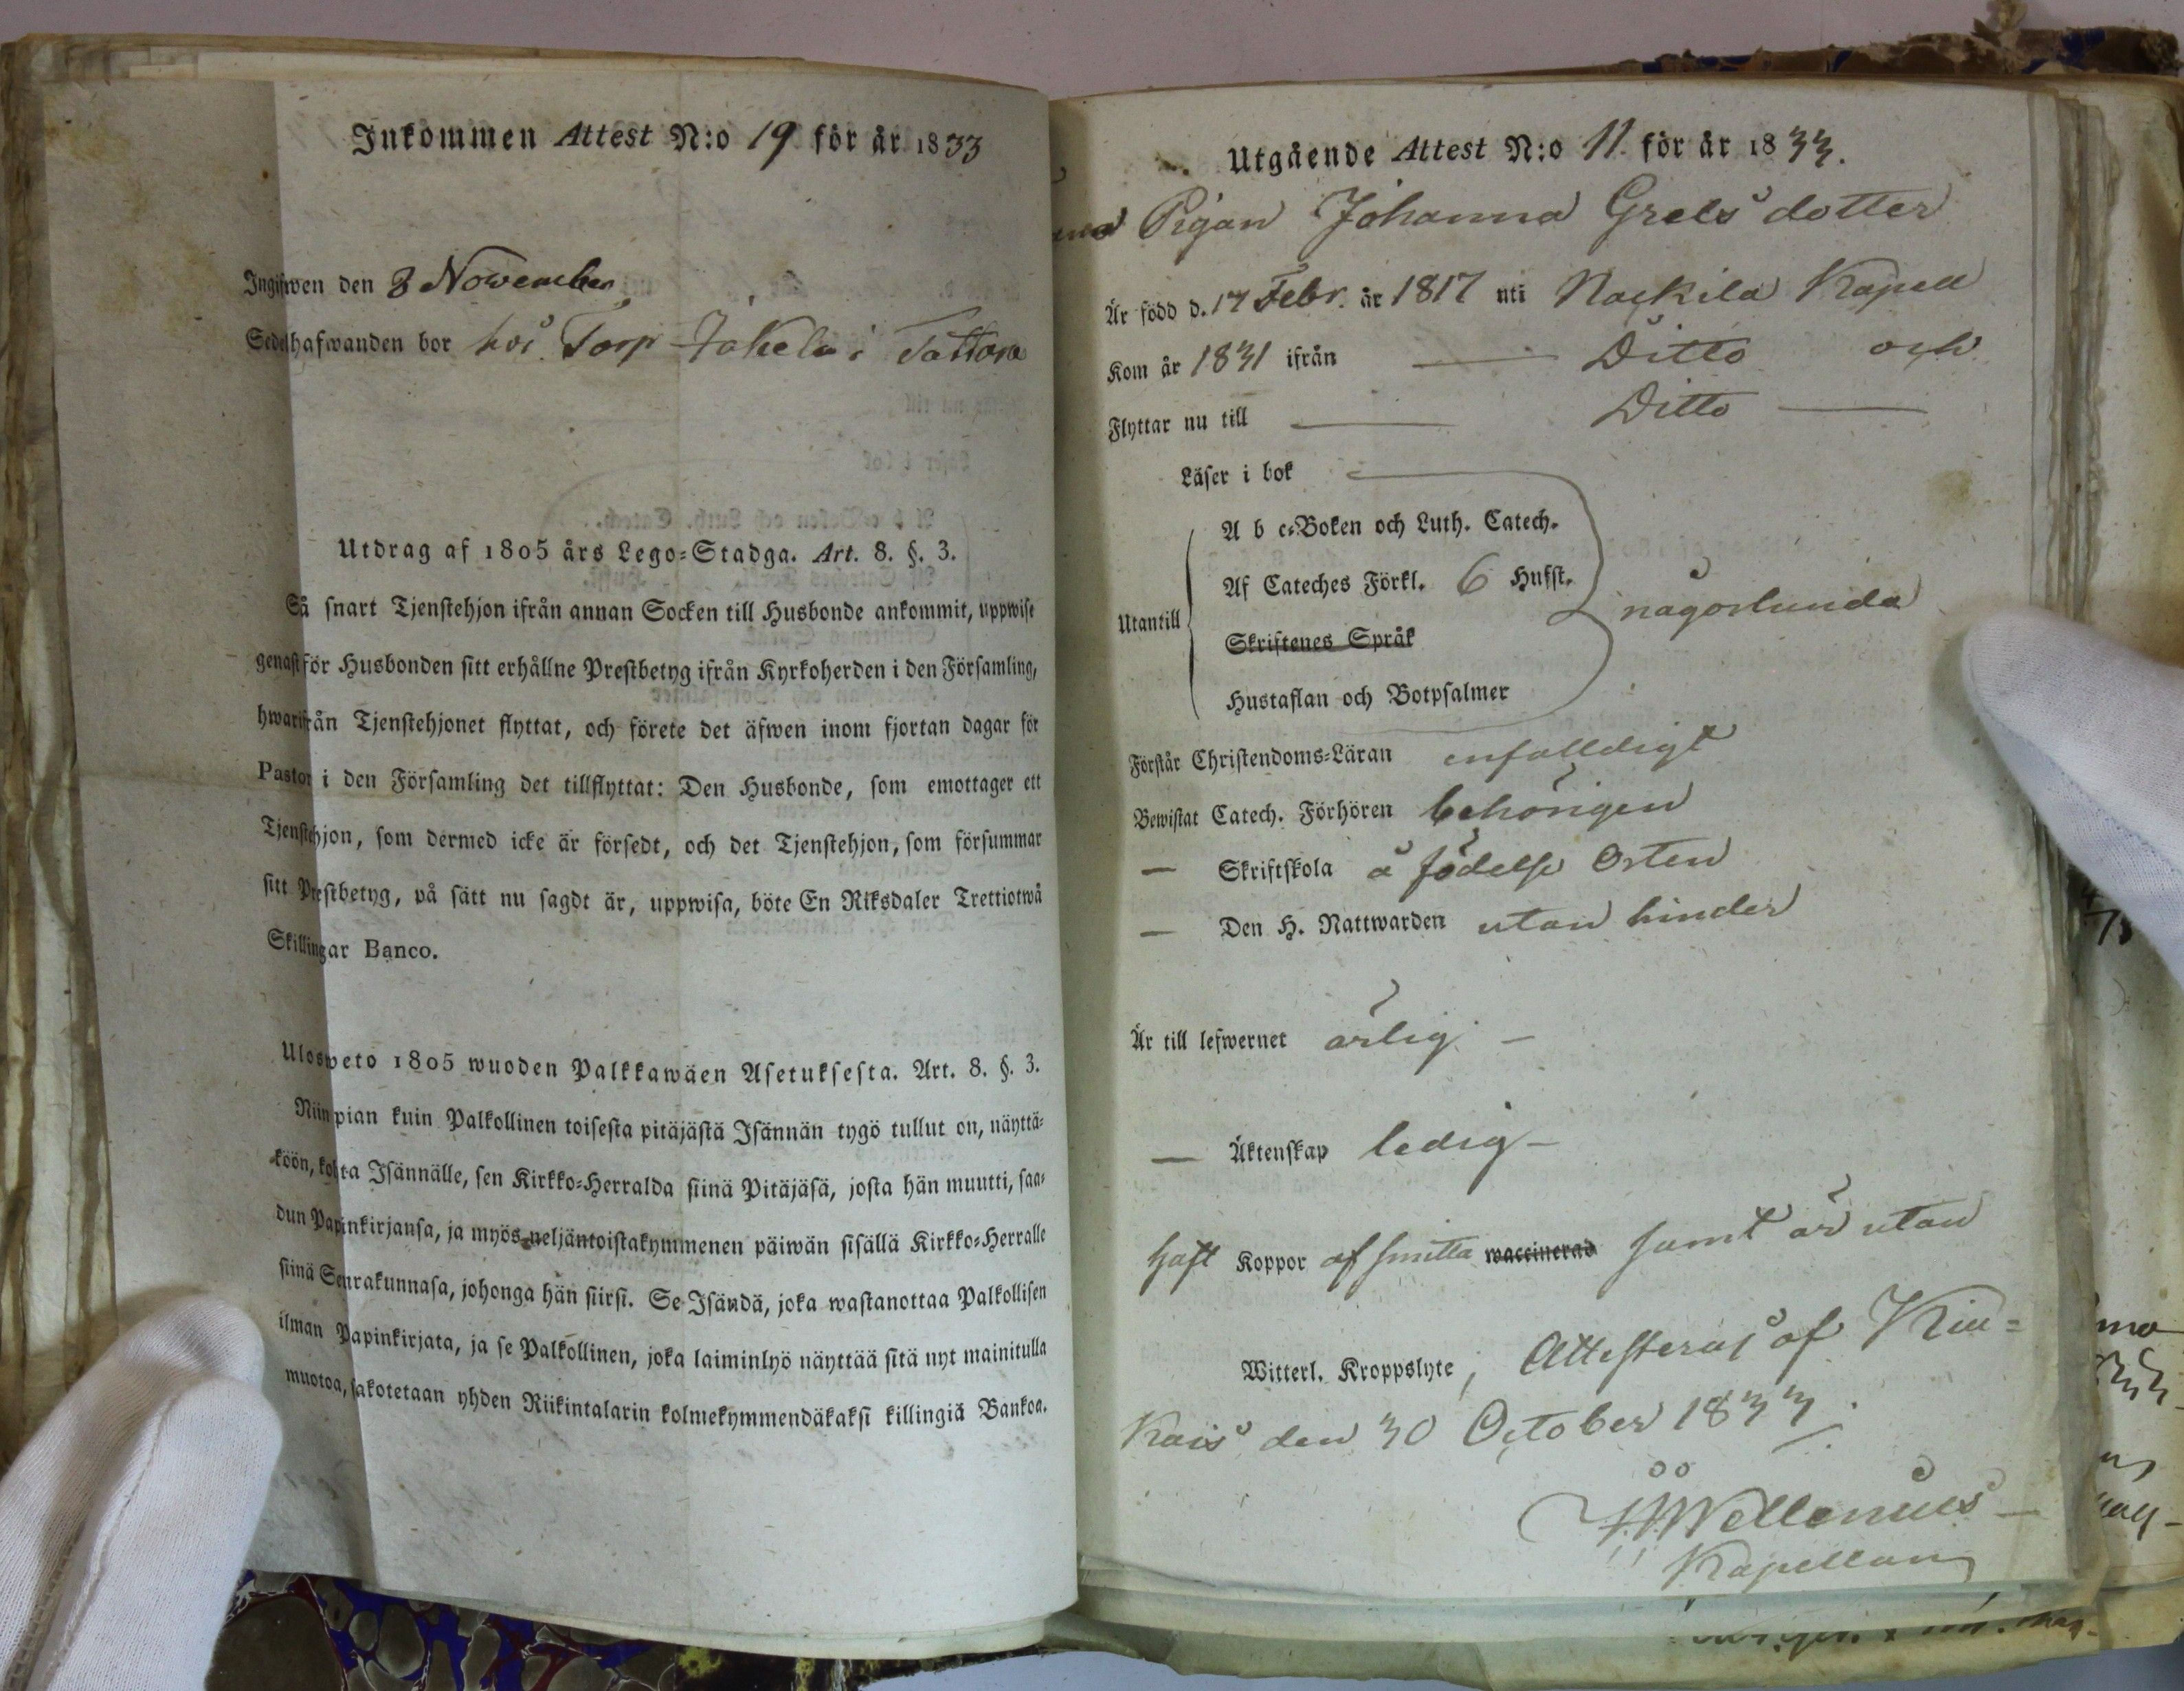 Inkommen Attest N:o 19 för år 1833
Ingifwen den 8 November
Sedelhafwanden bor hos Torp Jakela i Tattara
Utdrag af 1805 års Lego-Stadga. Art. 8. §. 3.
Så snart Tjenstehjon ifrån annan Socken till Husbonde ankommit, uppwise
genast för Husbonden sitt erhållne Prestbetyg ifrån Kyrkoherden i den Församling,
hwarifrån Tjenstehjonet flyttat, och förete det äfwen inom fjortan dagar för
Pastor i den Församling det tillflyttat: Den Husbonde, som emottager ett
Tjenstehjon, som dermed icke är försedt, och det Tjenstehjon, som försummar
sitt Prestbetyg, på sätt nu sagdt är, uppwisa, böte En Riksdaler Trettiotwå
Skillingar Banco.
Ulosweto 1805 wuoden Palkkawäen Asetuksesta. Art. 8. §. 3.
Niin pian kuin Palkollinen toisesta pitäjästä Isännän tygö tullut on, näyttä-
köön, kohta Isännälle, sen Kirkko-Herralda siinä Pitäjäsä, josta hän muutti, saa-
dun Papinkirjansa, ja myös neljäntoistakymmenen päiwän sisällä Kirkko-Herralle
siinä Seurakunnasa, johonga hän siirsi. Se Isändä, joka wastanottaa Palkollisen
ilman Papinkirjata, ja se Palkollinen, joka laiminlyö näyttää sitä nyt mainitulla
muotoa, sakotetaan yhden Riikintalarin kolmekymmendäkaksi killingiä Bankoa.
Utgående Attest N:o 11 för år 1833.
Pigan Johanna Grelsdotter
Är född d. 17 Febr. år 1817 uti Nackila Kapell
Kom år 1831 ifrån — Ditto och
Flyttar nu till — Ditto —
Läser i bok
A b c-Boken och Luth. Catech.
Af Cateches Förkl. 6 Hufst.
Utantill någorlunda
Skriftenes Språk
Hustaflan och Botpsalmer
Förstår Christendoms-Läran enfalldigt
Bewistat Catech. Förhören behörigen
— Skriftskola å födelse Orten
— Den H. Nattwarden utan hinder
Är till lefwernet ärlig —
— Äktenskap ledig —
haft Koppor af smitta waccinerad samt är utan
Witterl. Kroppslyte, Attesteras af Kiu-
Kais den 30 October 1833.
Wellenius
Kapellan